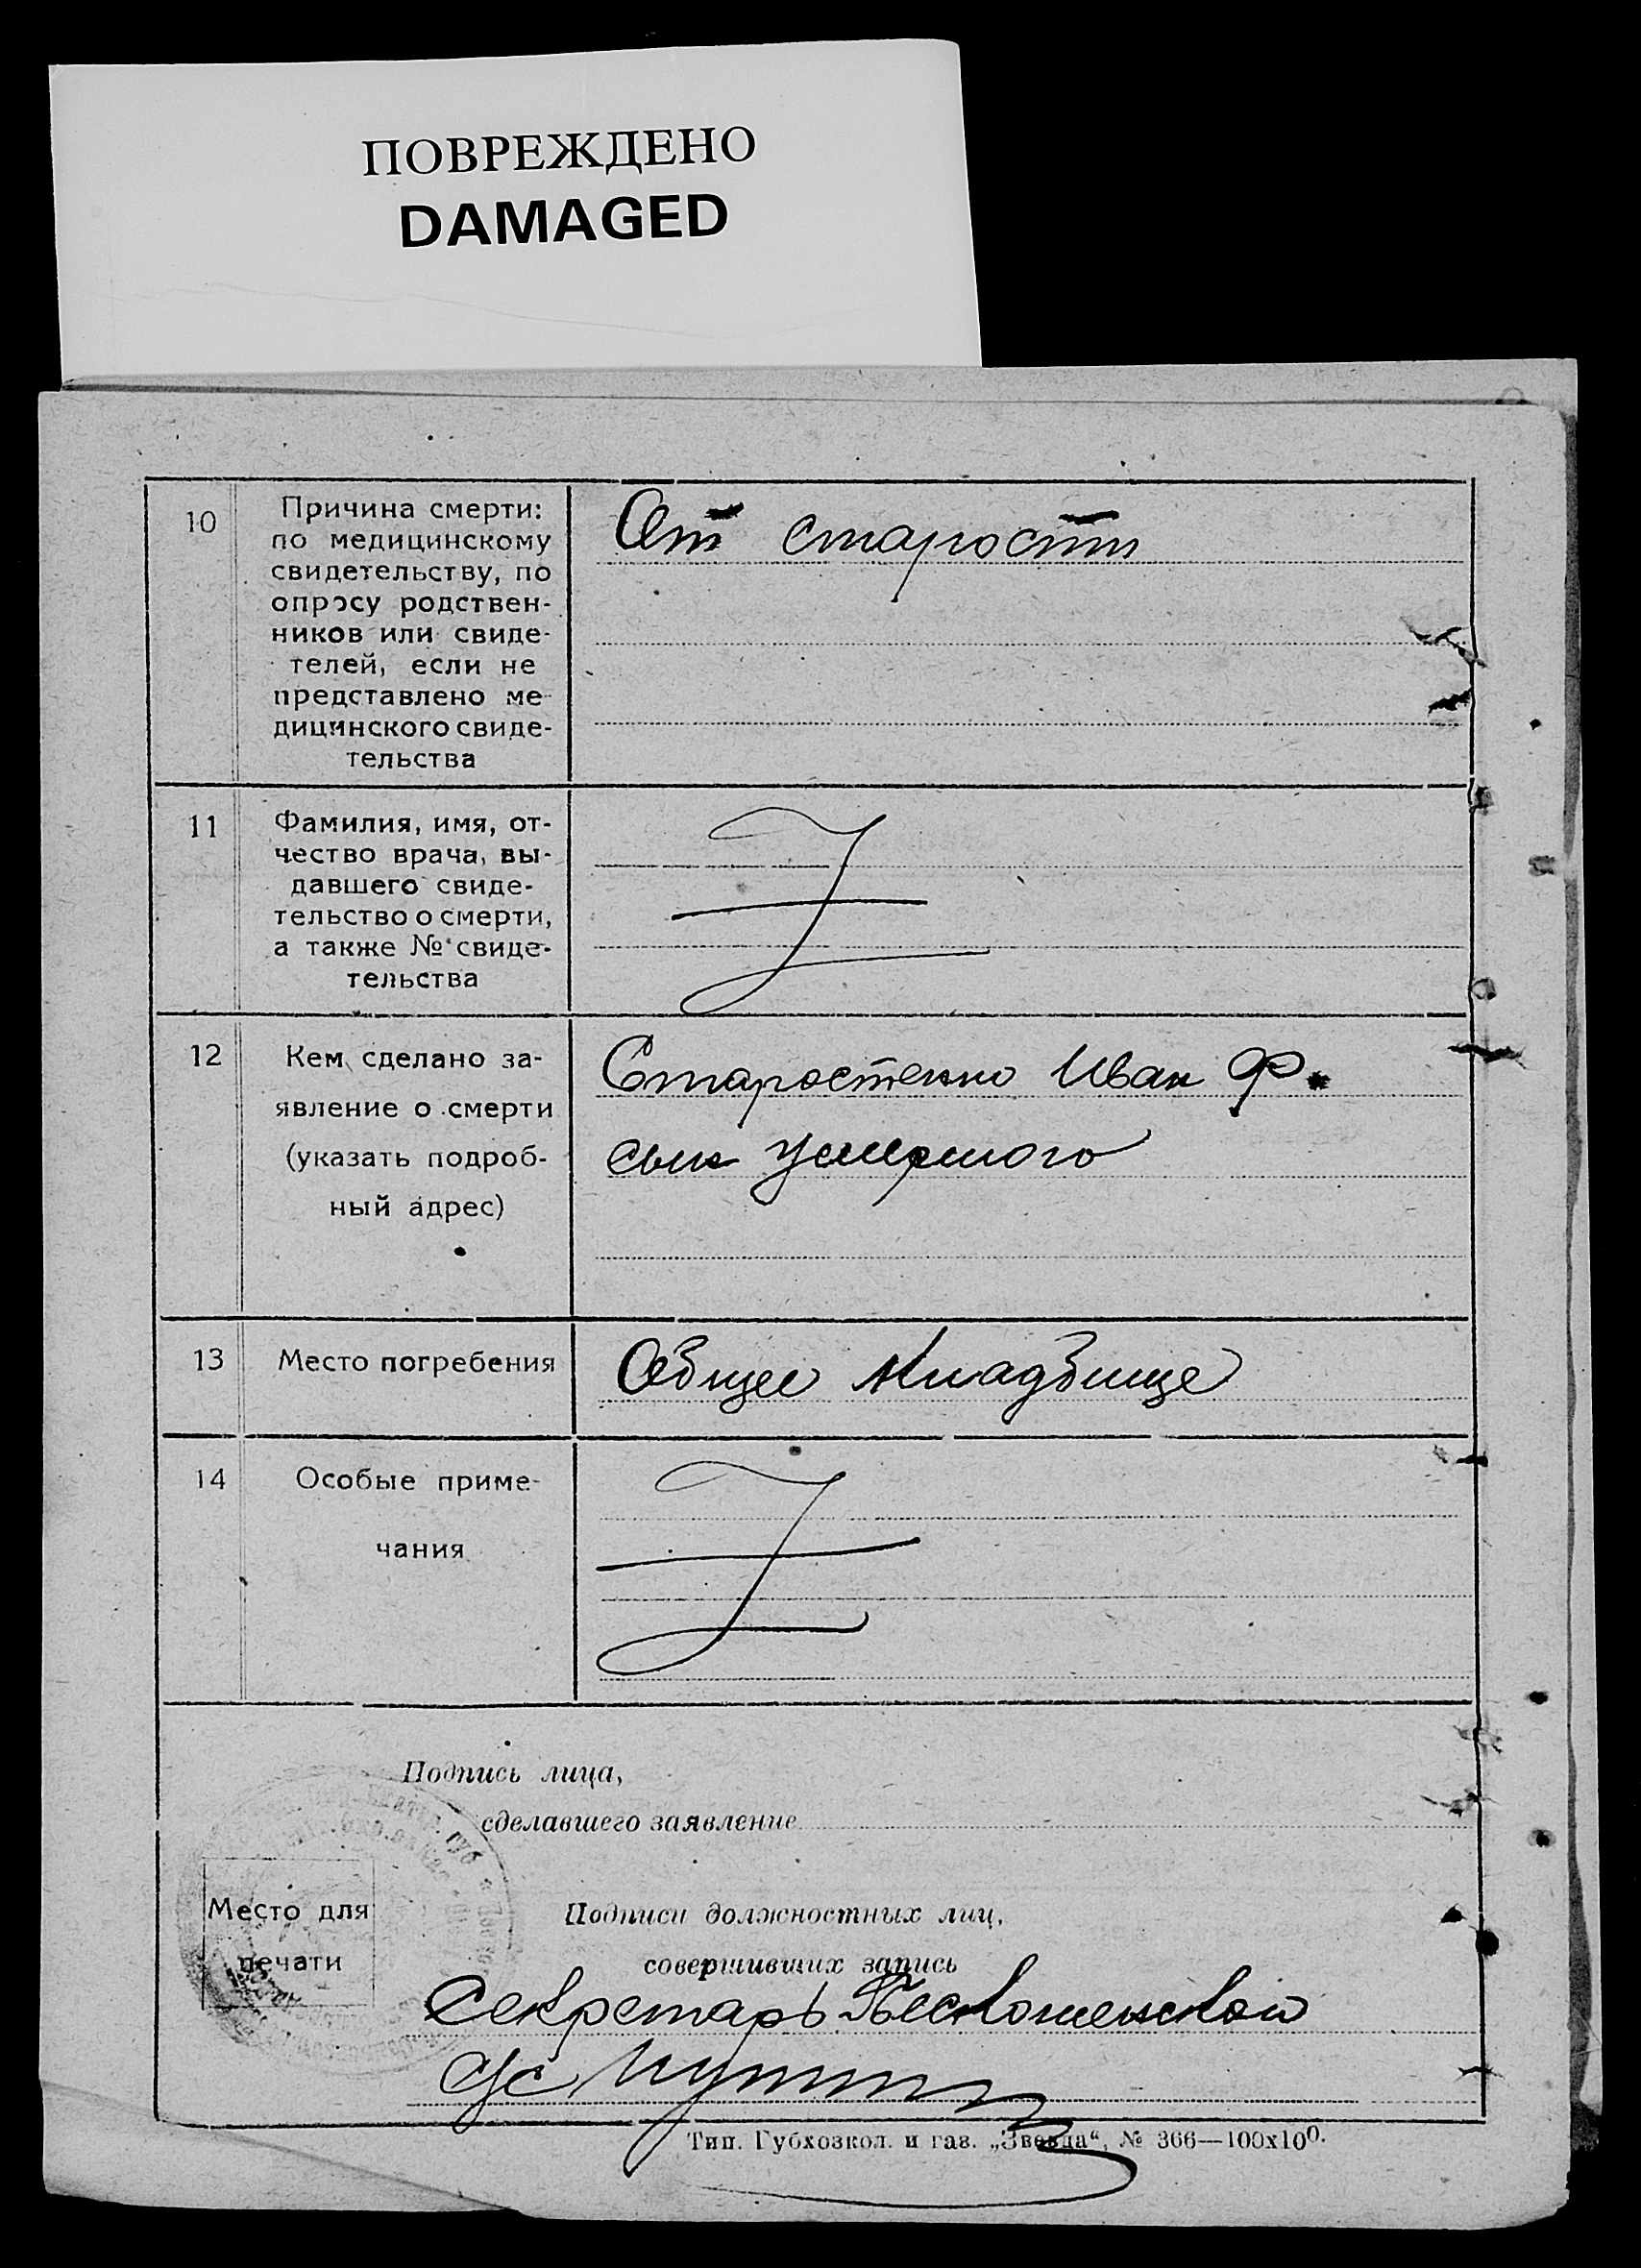 ПОВРЕЖДЕНО
DAMAGED
10
Причина смерти:
по медицинскому
свидетельству, по
опросу родствен-
ников или свиде-
телей, если не
представлено ме-
дицинского свиде-
тельства
От старости
11
Фамилия, имя, от-
чество врача, вы-
давшего свиде-
тельство о смерти,
а также № свиде-
тельства
12
Кем сделано за-
явление о смерти
(указать подроб-
ный адрес)
Старостенко Иван Ф.
сын умершого
13
Место погребения
Общее кладбище
14
Особые приме-
чания
Подпись лица,
сделавшего заявление
Место для
печати
Подписи должностных лиц,
совершивших запись
Секретарь
с/с
Тип. Губхозкол. и газ. „Звезда“, № 366—100х100.